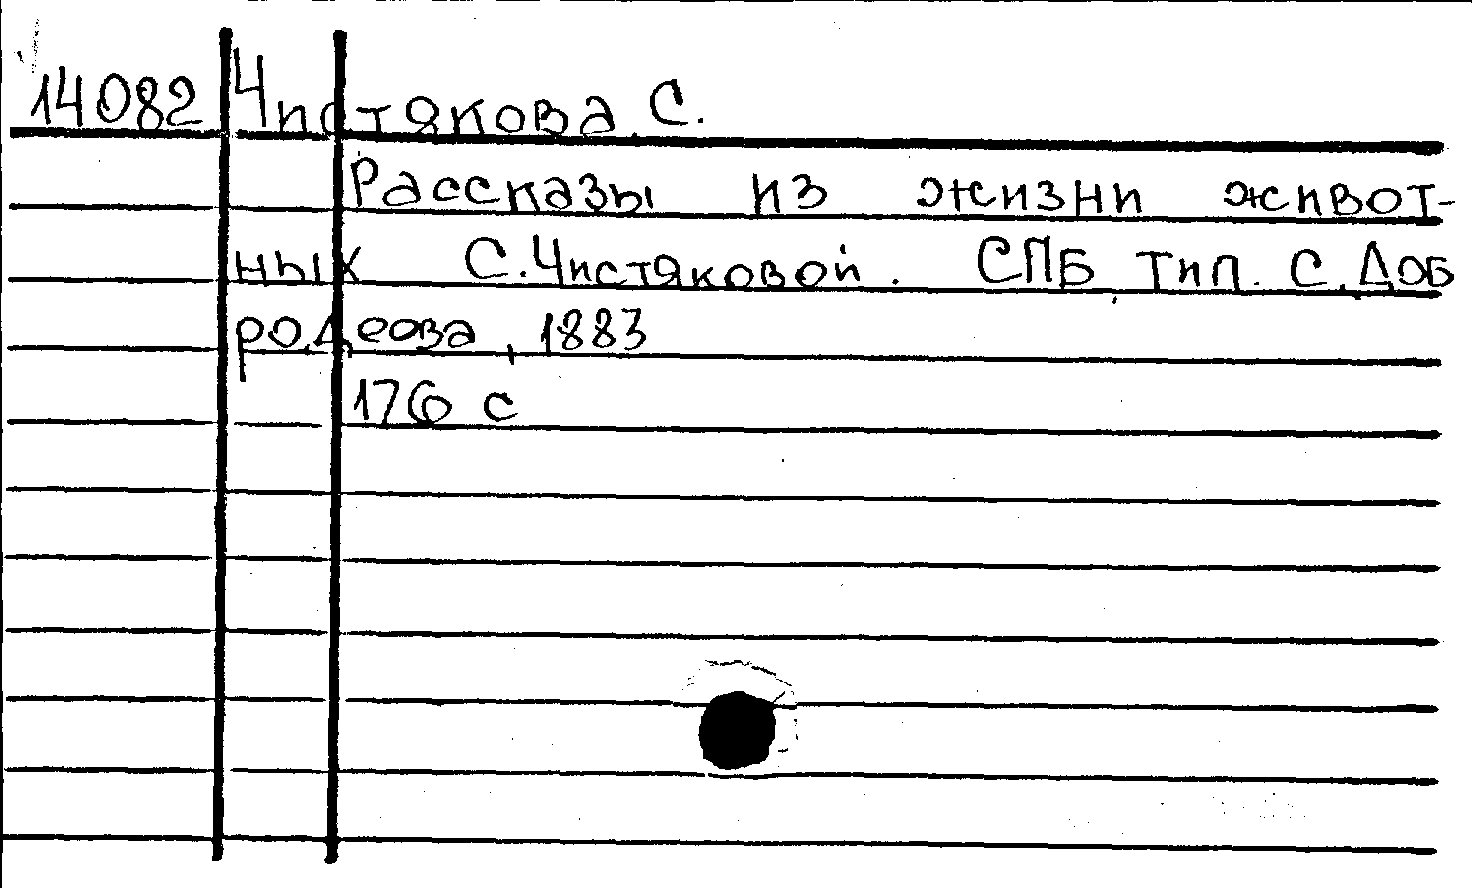 14082 Чистякова С.
Рассказы из жизни живот-
ных С. Чистяковой. СПБ, тип. С. Доб
родеева, 1883
176 с